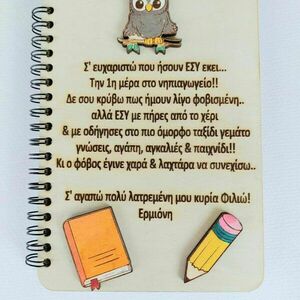 Σ' ευχαριστώ που ήσουν ΕΣΥ εκει...
Την 1η μέρα στο νηπιαγωγείο!!
Δε σου κρύβω πως ήμουν λίγο φοβισμένη..
αλλά ΕΣΥ με πήρες από το χέρι
& με οδήγησες στο πιο όμορφο ταξίδι γεμάτο
γνώσεις, αγάπη, αγκαλιές & παιχνίδι!!
Κι ο φόβος έγινε χαρά & λαχτάρα να συνεχίσω..
Σ' αγαπώ πολύ λατρεμένη μου κυρία Φιλιώ!
Ερμιόνη